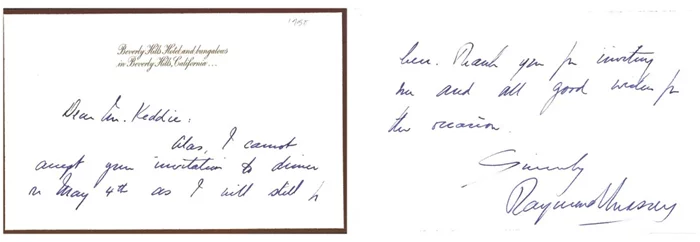 1958
Beverly Hills Hotel and bungalows
in Beverly Hills, California...
Dear Mr. Keddie:
Alas, I cannot
accept your invitation to dinner
on May 4th as I will still be
here. Thank you for inviting
me and all good wishes for
the occasion.
Sincerely
Raymond Massey